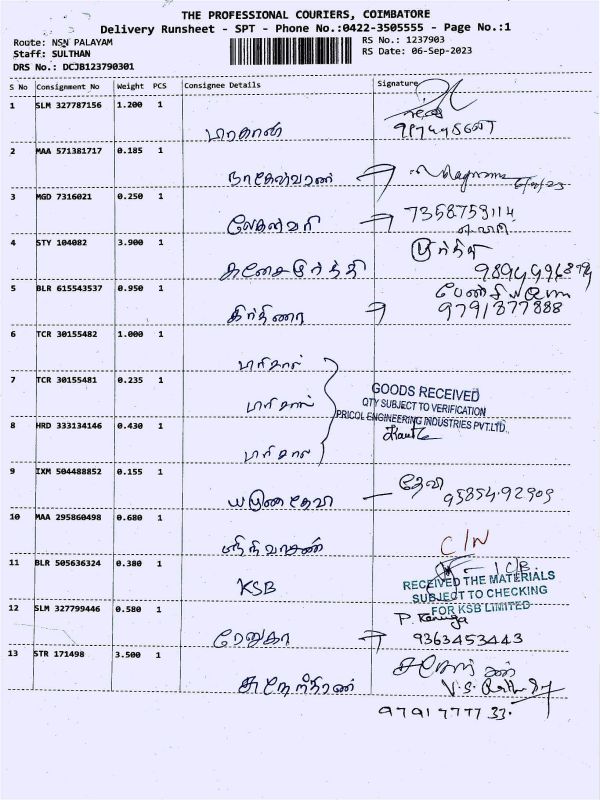 THE PROFESSIONAL COURIERS, COIMBATORE
Delivery Runsheet - SPT - Phone No.:0422-3505555 - Page No.:1
Route: NSN PALAYAM
RS No.: 1237903
Staff: SULTHAN
RS Date: 06-Sep-2023
DRS No.: DCJB123790301
S No Consignment No Weight PCS Consignee Details Signature
1 SLM 327787156 1.200 1
2 MAA 571381717 0.185 1
நாகேஸ்வரன்
6/9/23
3 MGD 7316021 0.250 1
7358759114
4 STY 104082 3.900 1
5 BLR 615543537 0.950 1
9791377888
6 TCR 30155482 1.000 1
பரிகால்
7 TCR 30155481 0.235 1
பரிகால்
GOODS RECEIVED
QTY SUBJECT TO VERIFICATION
PRICOL ENGINEERING INDUSTRIES PVT.LTD.
8 HRD 333134146 0.430 1
பரிகால்
9 IXM 504488852 0.155 1
யமுனாதேவி
தேவி
95854-92909
10 MAA 295860498 0.680 1
ஸ்ரீநிவாசன்
C/N
11 BLR 505636324 0.380 1
KSB
RECEIVED THE MATERIALS
SUBJECT TO CHECKING
FOR KSB LIMITED
12 SLM 327799446 0.580 1
ரேணுகா
9363453443
13 STR 171498 3.500 1
97917777 33.